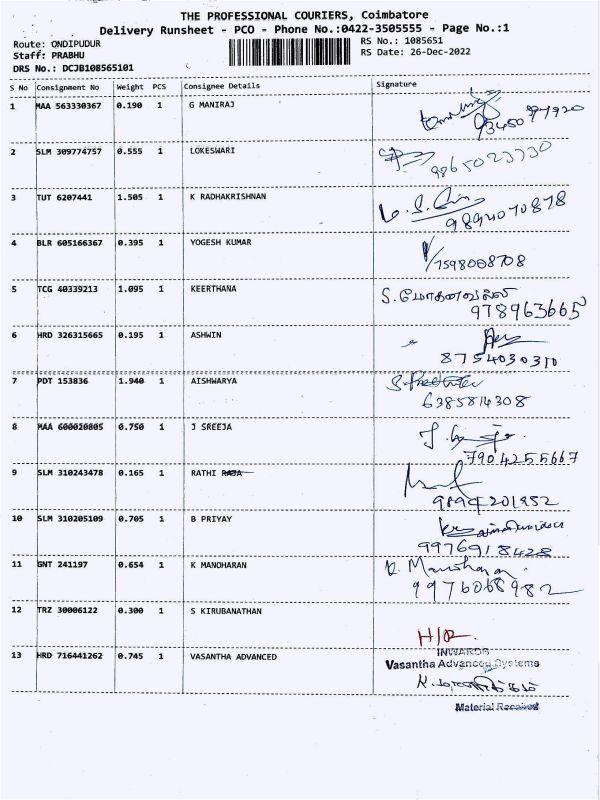 THE PROFESSIONAL COURIERS, Coimbatore
Delivery Runsheet - PCO - Phone No.:0422-3505555 - Page No.:1
Route: ONDIPUDUR
Staff: PRABHU
DRS No.: DCJB108565101
RS No.: 1085651
RS Date: 26-Dec-2022
S No Consignment No Weight PCS Consignee Details Signature
1 MAA 563330367 0.190 1 G MANIRAJ
2 SLM 309774757 0.555 1 LOKESWARI
9865023730
3 TUT 6207441 1.505 1 K RADHAKRISHNAN
9894070878
4 BLR 605166367 0.395 1 YOGESH KUMAR
7598008708
5 TCG 40339213 1.095 1 KEERTHANA
S. மோகனவல்லி
978963665
6 HRD 326315665 0.195 1 ASHWIN
8754030310
7 PDT 153836 1.940 1 AISHWARYA
6385814308
8 MAA 600020805 0.750 1 J SREEJA
7904255667
9 SLM 310243478 0.165 1 RATHI
9894201952
10 SLM 310205109 0.705 1 B PRIYAY
9976918428
11 GNT 241197 0.654 1 K MANOHARAN
K. Manoharan
9976068982
12 TRZ 30006122 0.300 1 S KIRUBANATHAN
H/O
13 HRD 716441262 0.745 1 VASANTHA ADVANCED
INWARDS
Vasantha Advanced Systems
Material Received